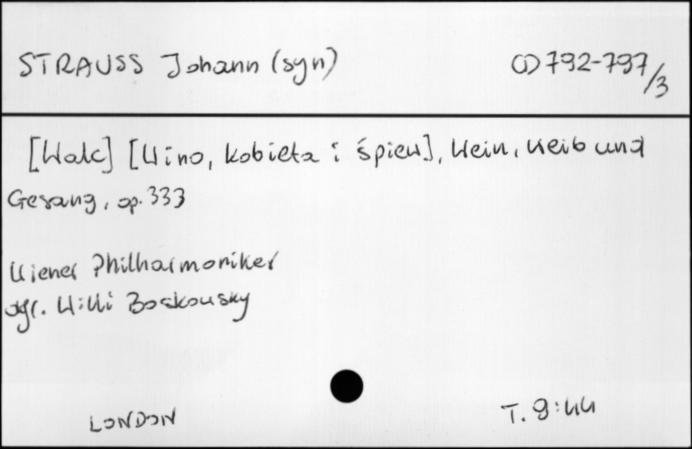 STRAUSS Johann (syn) CD 792-797/3
[Walc] [Wino, kobieta i śpiew], Wein, Weib und
Gesang, op. 333
Wiener Philharmoniker
dyr. Willi Boskowsky
LONDON T. 9:44